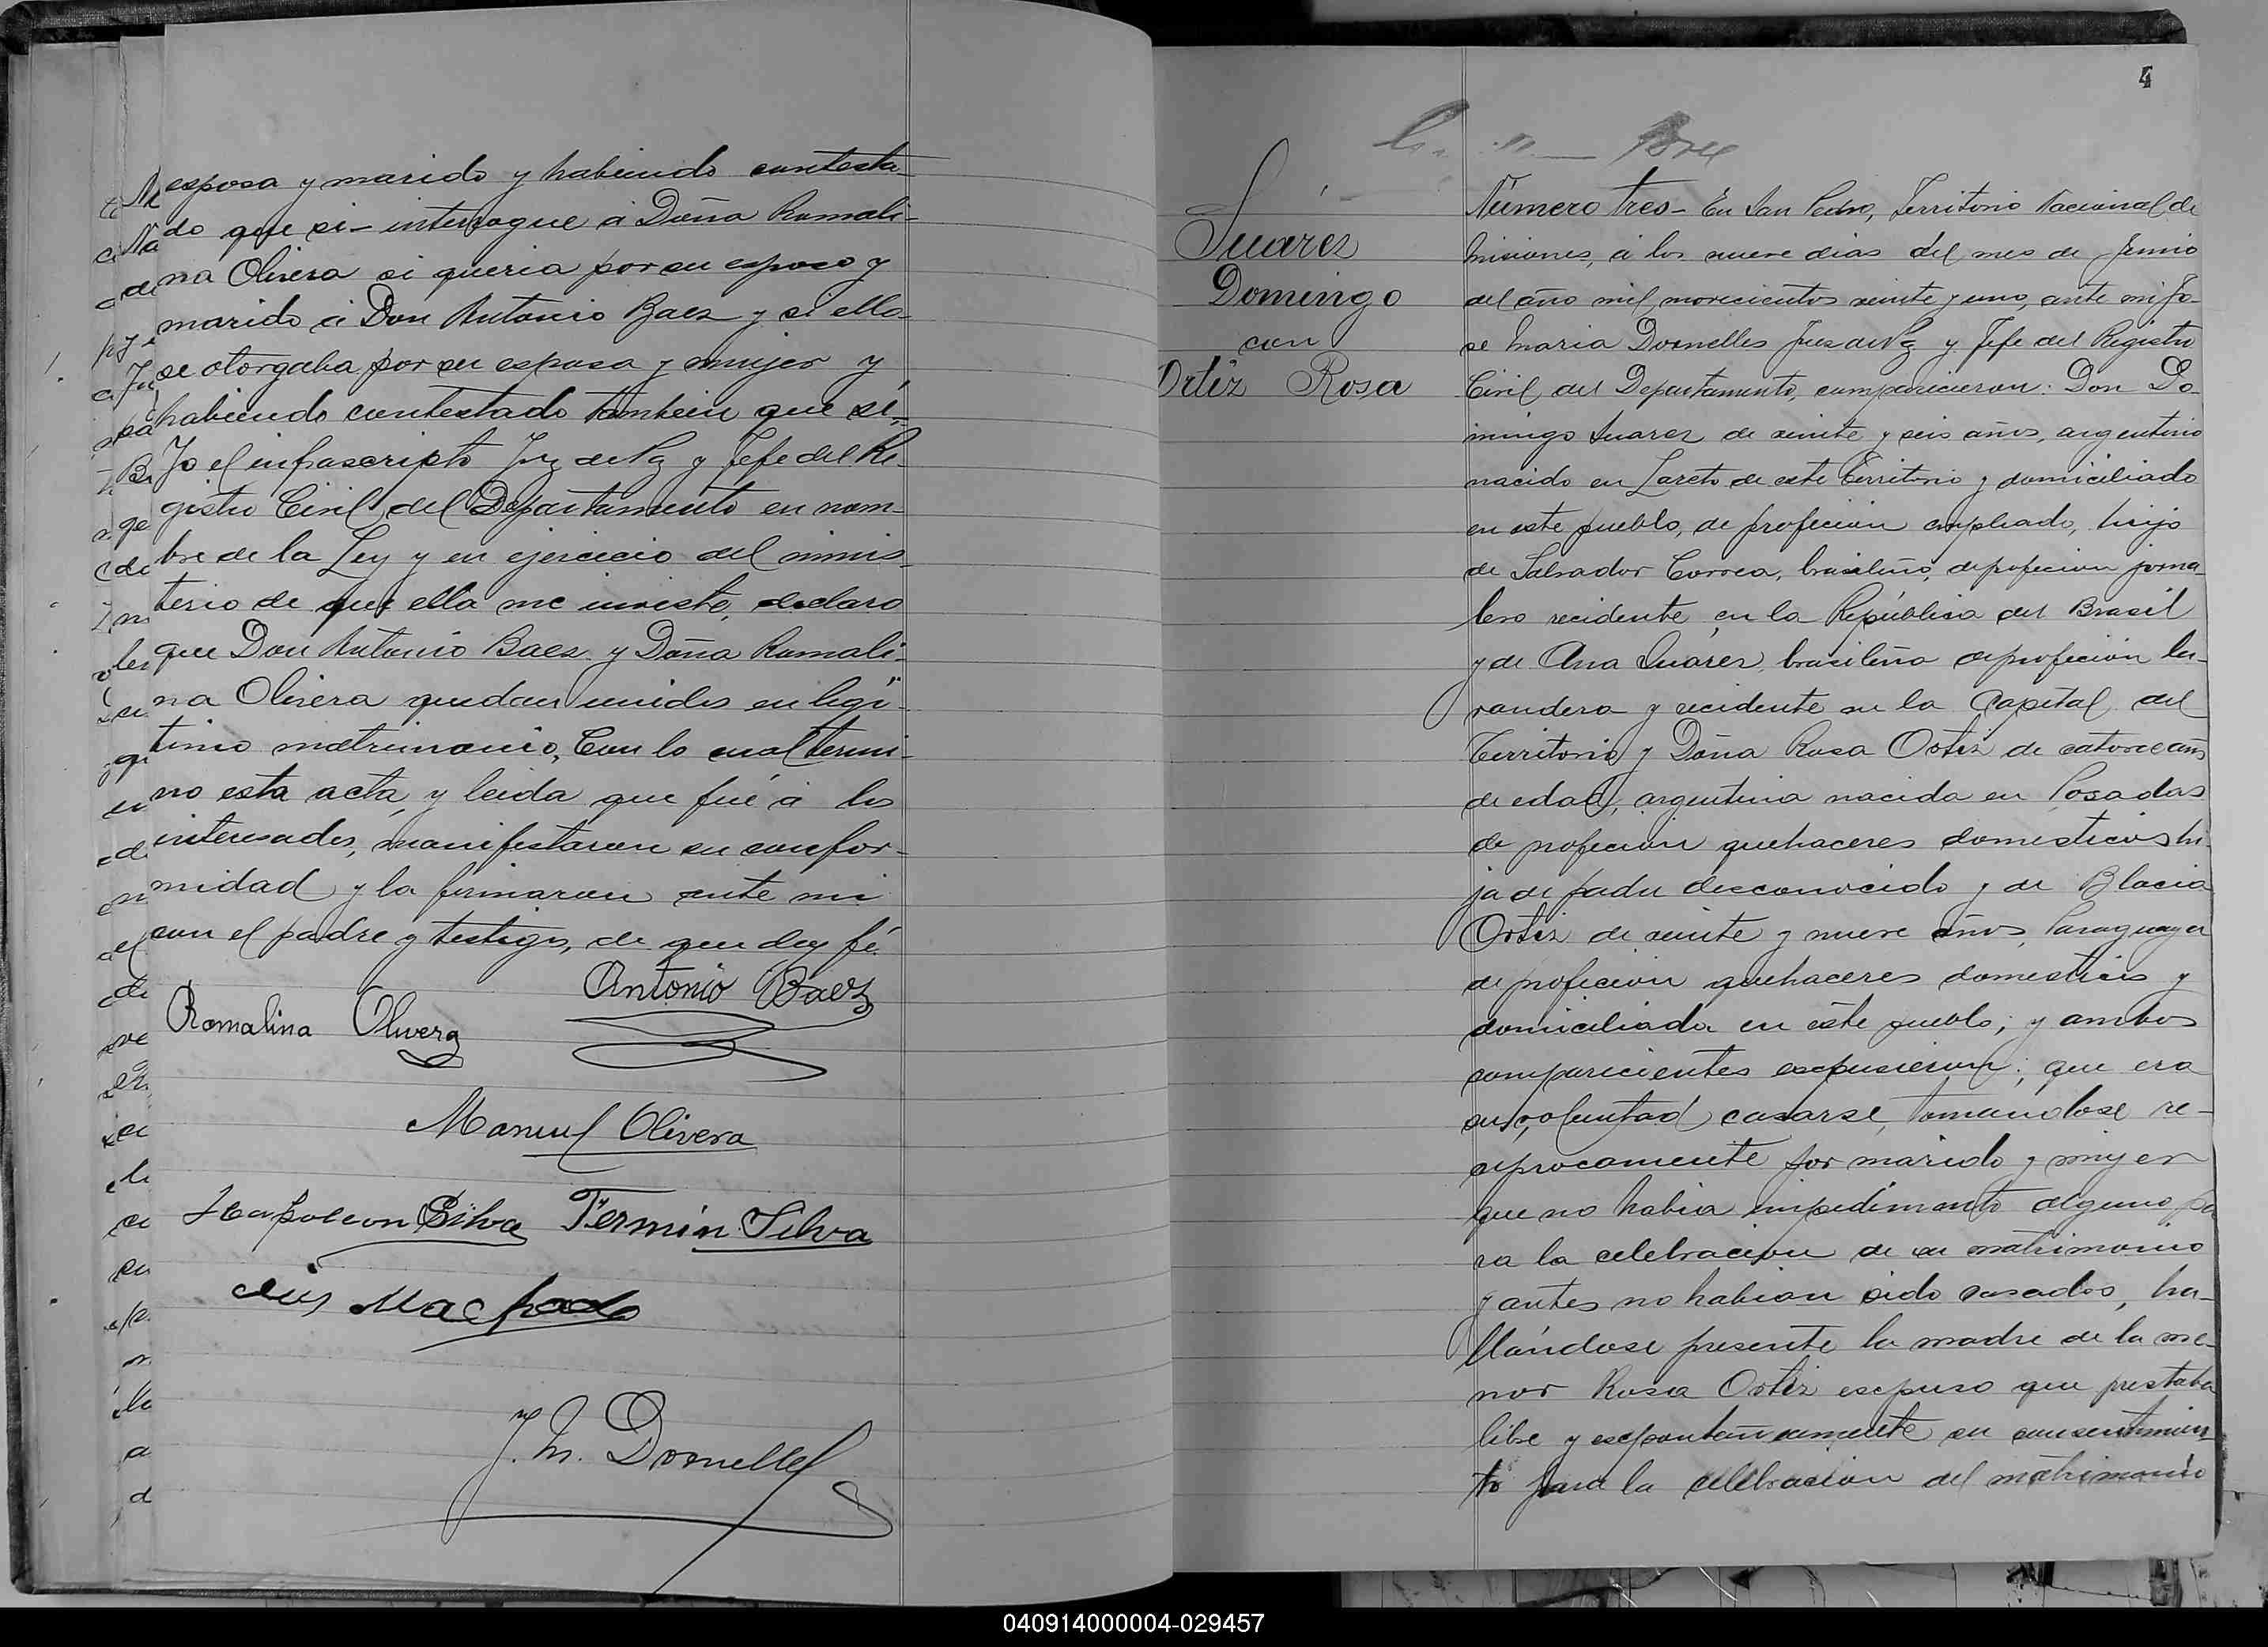 esposa y marido y habiendo contesta-
do que si- interrogue á Doña Romali-
na Olivera si queria por su esposo y
marido á Don Antonio Baez y si ella
se otorgaba por su esposa y mujer y
habiendo contestado tambien que si,-
Yo el infrascripto Juz de Paz y Jefe del Re-
gistro Civil del Departamento en nom-
bre de la Ley y en ejercicio del minis-
terio de que ella me inviste, declaro
que Don Antonio Baez y Doña Romali-
na Olivera quedan unidos en legi-
timo matrimonio, Con lo cual termi-
no esta acta, y leida que fué á los
interesados, manifestaron su confor-
midad y la firmaron ante mi
con el padre y testigos, de que doy fé.
Antonio Baez
Romalina Olivera
Manuel Olivera
Napoleon Silva Fermin Silva
Luis Machado
J. M. Dornelles
4
Suárez
Domingo
con
Ortíz Rosa
Número tres- En San Pedro, Territorio Nacional de
Misiones, á los nueve dias del mes de Junio
del año mil novecientos veinte y uno, ante mi Jo-
se Maria Dornelles Juez de Paz y Jefe del Registro
Civil del Departamento, comparicieron: Don Do-
mingo Suarez de veinte y seis años, argentino
nacido en Loreto de este Territorio y domiciliado
en este pueblo, de profecion empleado, hijo
de Salvador Correa, brasileño, de profecion jorna-
lero recidente en la República del Brasil
y de Ana Suarez, brasileña de profecion la-
vandera y recidente en la Capital del
Territorio y Doña Rosa Ortiz de catorce años
de edad, argentina nacida en Posadas
de profecion quehaceres domesticos hi-
ja de padre desconocido y de Blacia
Ortiz de veinte y nueve años, Paraguaya
de profecion quehaceres domesticos y
domiciliada en este pueblo; y ambos
comparicientes escpusieron; que era
su voluntad casarse, tomandose re-
ciprocamente por marido y mujer
que no habia impedimento alguno pa
ra la celebracion de su matrimonio
y antes no habian sido casados, ha-
llándose presente la madre de la me-
nor Rosa Ortiz escpuso que prestaba
libre y escpontañeamente su consentimien-
to para la celebracion del matrimonio
040914000004-029457